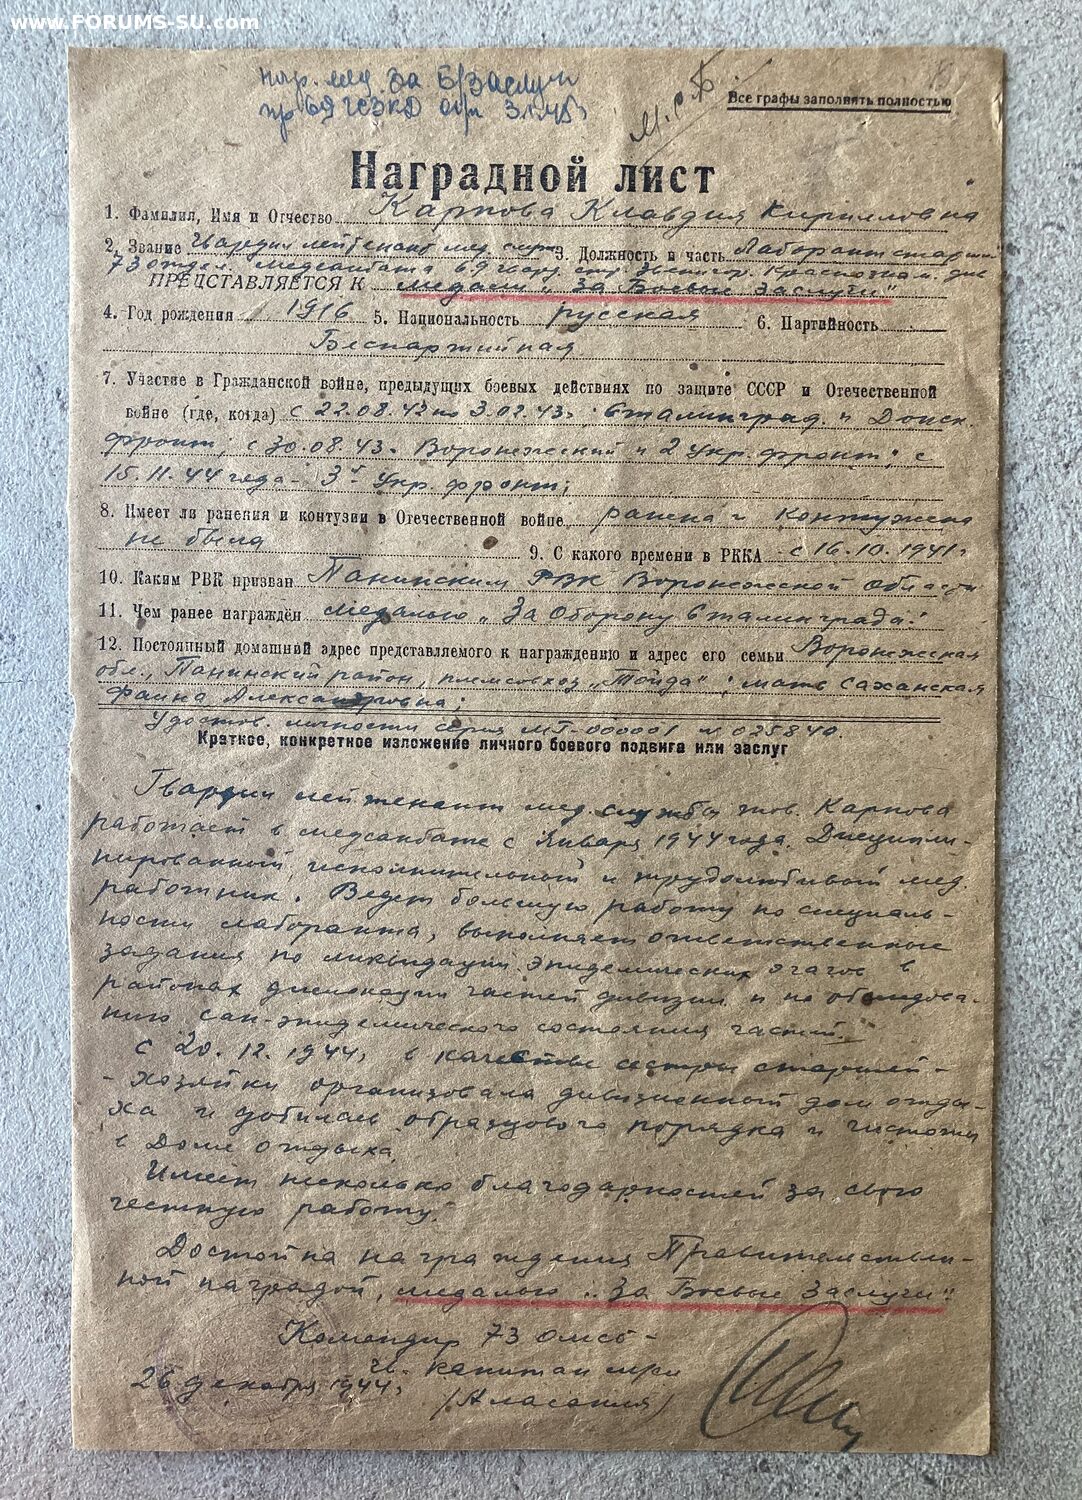 www.FORUMS-SU.com
наг. мед. за Б/Заслуги
пр 69 гсзкд
Все графы заполнять полностью
Наградной лист
1. Фамилия, Имя и Отчество Карпова Клавдия Кирилловна
2. Звание Гвардии лейтенант мед. службы 3. Должность и часть Лаборант старший
73 отдел. медсанбата 69 гвард. стр. Звенигор. Краснознам. див
ПРЕДСТАВЛЯЕТСЯ К медали „За Боевые Заслуги"
4. Год рождения 1916 5. Национальность русская 6. Партийность
Беспартийная
7. Участие в Гражданской войне, предыдущих боевых действиях по защите СССР и Отечественной
войне (где, когда) с 22.08.42 по 3.02.43г. Сталинград. и Донск.
фронт; с 30.08.43. Воронежский и 2 Укр. фронт; с
15.11.44 года - 3й Укр. фронт;
8. Имеет ли ранения и контузии в Отечественной войне ранена и контужена
не была 9. С какого времени в РККА с 16.10.1941г
10. Каким РВК призван Панинским РВК Воронежской области
11. Чем ранее награждён медалью „За Оборону Сталинграда"
12. Постоянный домашний адрес представляемого к награждению и адрес его семьи Воронежская
обл., Панинский район, племсовхоз „Тойда"; мать Саханская
Фаина Александровна;
Удостов. личности серия МГ-000001 № 035840.
Краткое, конкретное изложение личного боевого подвига или заслуг
Гвардии лейтенант мед. службы тов. Карпова
работает в медсанбате с Января 1944 года. Дисципли-
нированный, исполнительный и трудолюбивый мед.
работник. Ведет большую работу по специаль-
ности лаборанта, выполняет ответственные
задания по ликвидации эпидемических очагов в
районах дислокации частей дивизии и по обследова-
нию сан-эпидемического состояния частей.
С 20.12.1944г в качестве сестры старшей-
-хозяйки организовала дивизионный дом отды-
ха и добилась образцового порядка и чистоты
в Доме отдыха.
Имеет несколько благодарностей за свою
честную работу.
Достойна награждения Правительствен-
ной наградой, медалью „За Боевые Заслуги"
Командир 73 омсб -
гв. капитан м/с
26 декабря 1944г (Аласания)